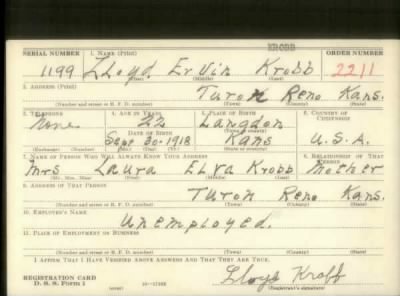 KROBB
SERIAL NUMBER 1. NAME (Print) ORDER NUMBER
1199 Lloyd Ervin Krobb 2211
(First) (Middle) (Last)
2. ADDRESS (Print)
Turon Reno Kans.
(Number and street or R. F. D. number) (Town) (County) (State)
3. TELEPHONE 4. AGE IN YEARS 5. PLACE OF BIRTH 6. COUNTRY OF CITIZENSHIP
None 22 Langdon
DATE OF BIRTH (Town or county)
Sept 30-1918 Kans U.S.A.
(Exchange) (Number) (Mo.) (Day) (Yr.) (State or country)
7. NAME OF PERSON WHO WILL ALWAYS KNOW YOUR ADDRESS 8. RELATIONSHIP OF THAT PERSON
Mrs Laura Elva Krobb Mother
(Mr., Mrs., Miss) (First) (Middle) (Last)
9. ADDRESS OF THAT PERSON
Turon Reno Kans.
(Number and street or R. F. D. number) (Town) (County) (State)
10. EMPLOYER'S NAME
Unemployed.
11. PLACE OF EMPLOYMENT OR BUSINESS
(Number and street or R. F. D. number) (Town) (County) (State)
I AFFIRM THAT I HAVE VERIFIED ABOVE ANSWERS AND THAT THEY ARE TRUE.
REGISTRATION CARD
D. S. S. Form 1 (over) Lloyd Krobb
(Registrant's signature)